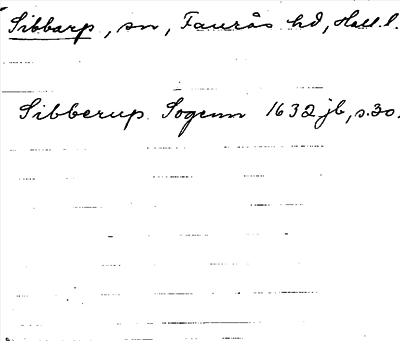 Sibbarp, sn, Faurås hd, Hall. l.
Sibberup Sogenn 1632 jb, s. 30.